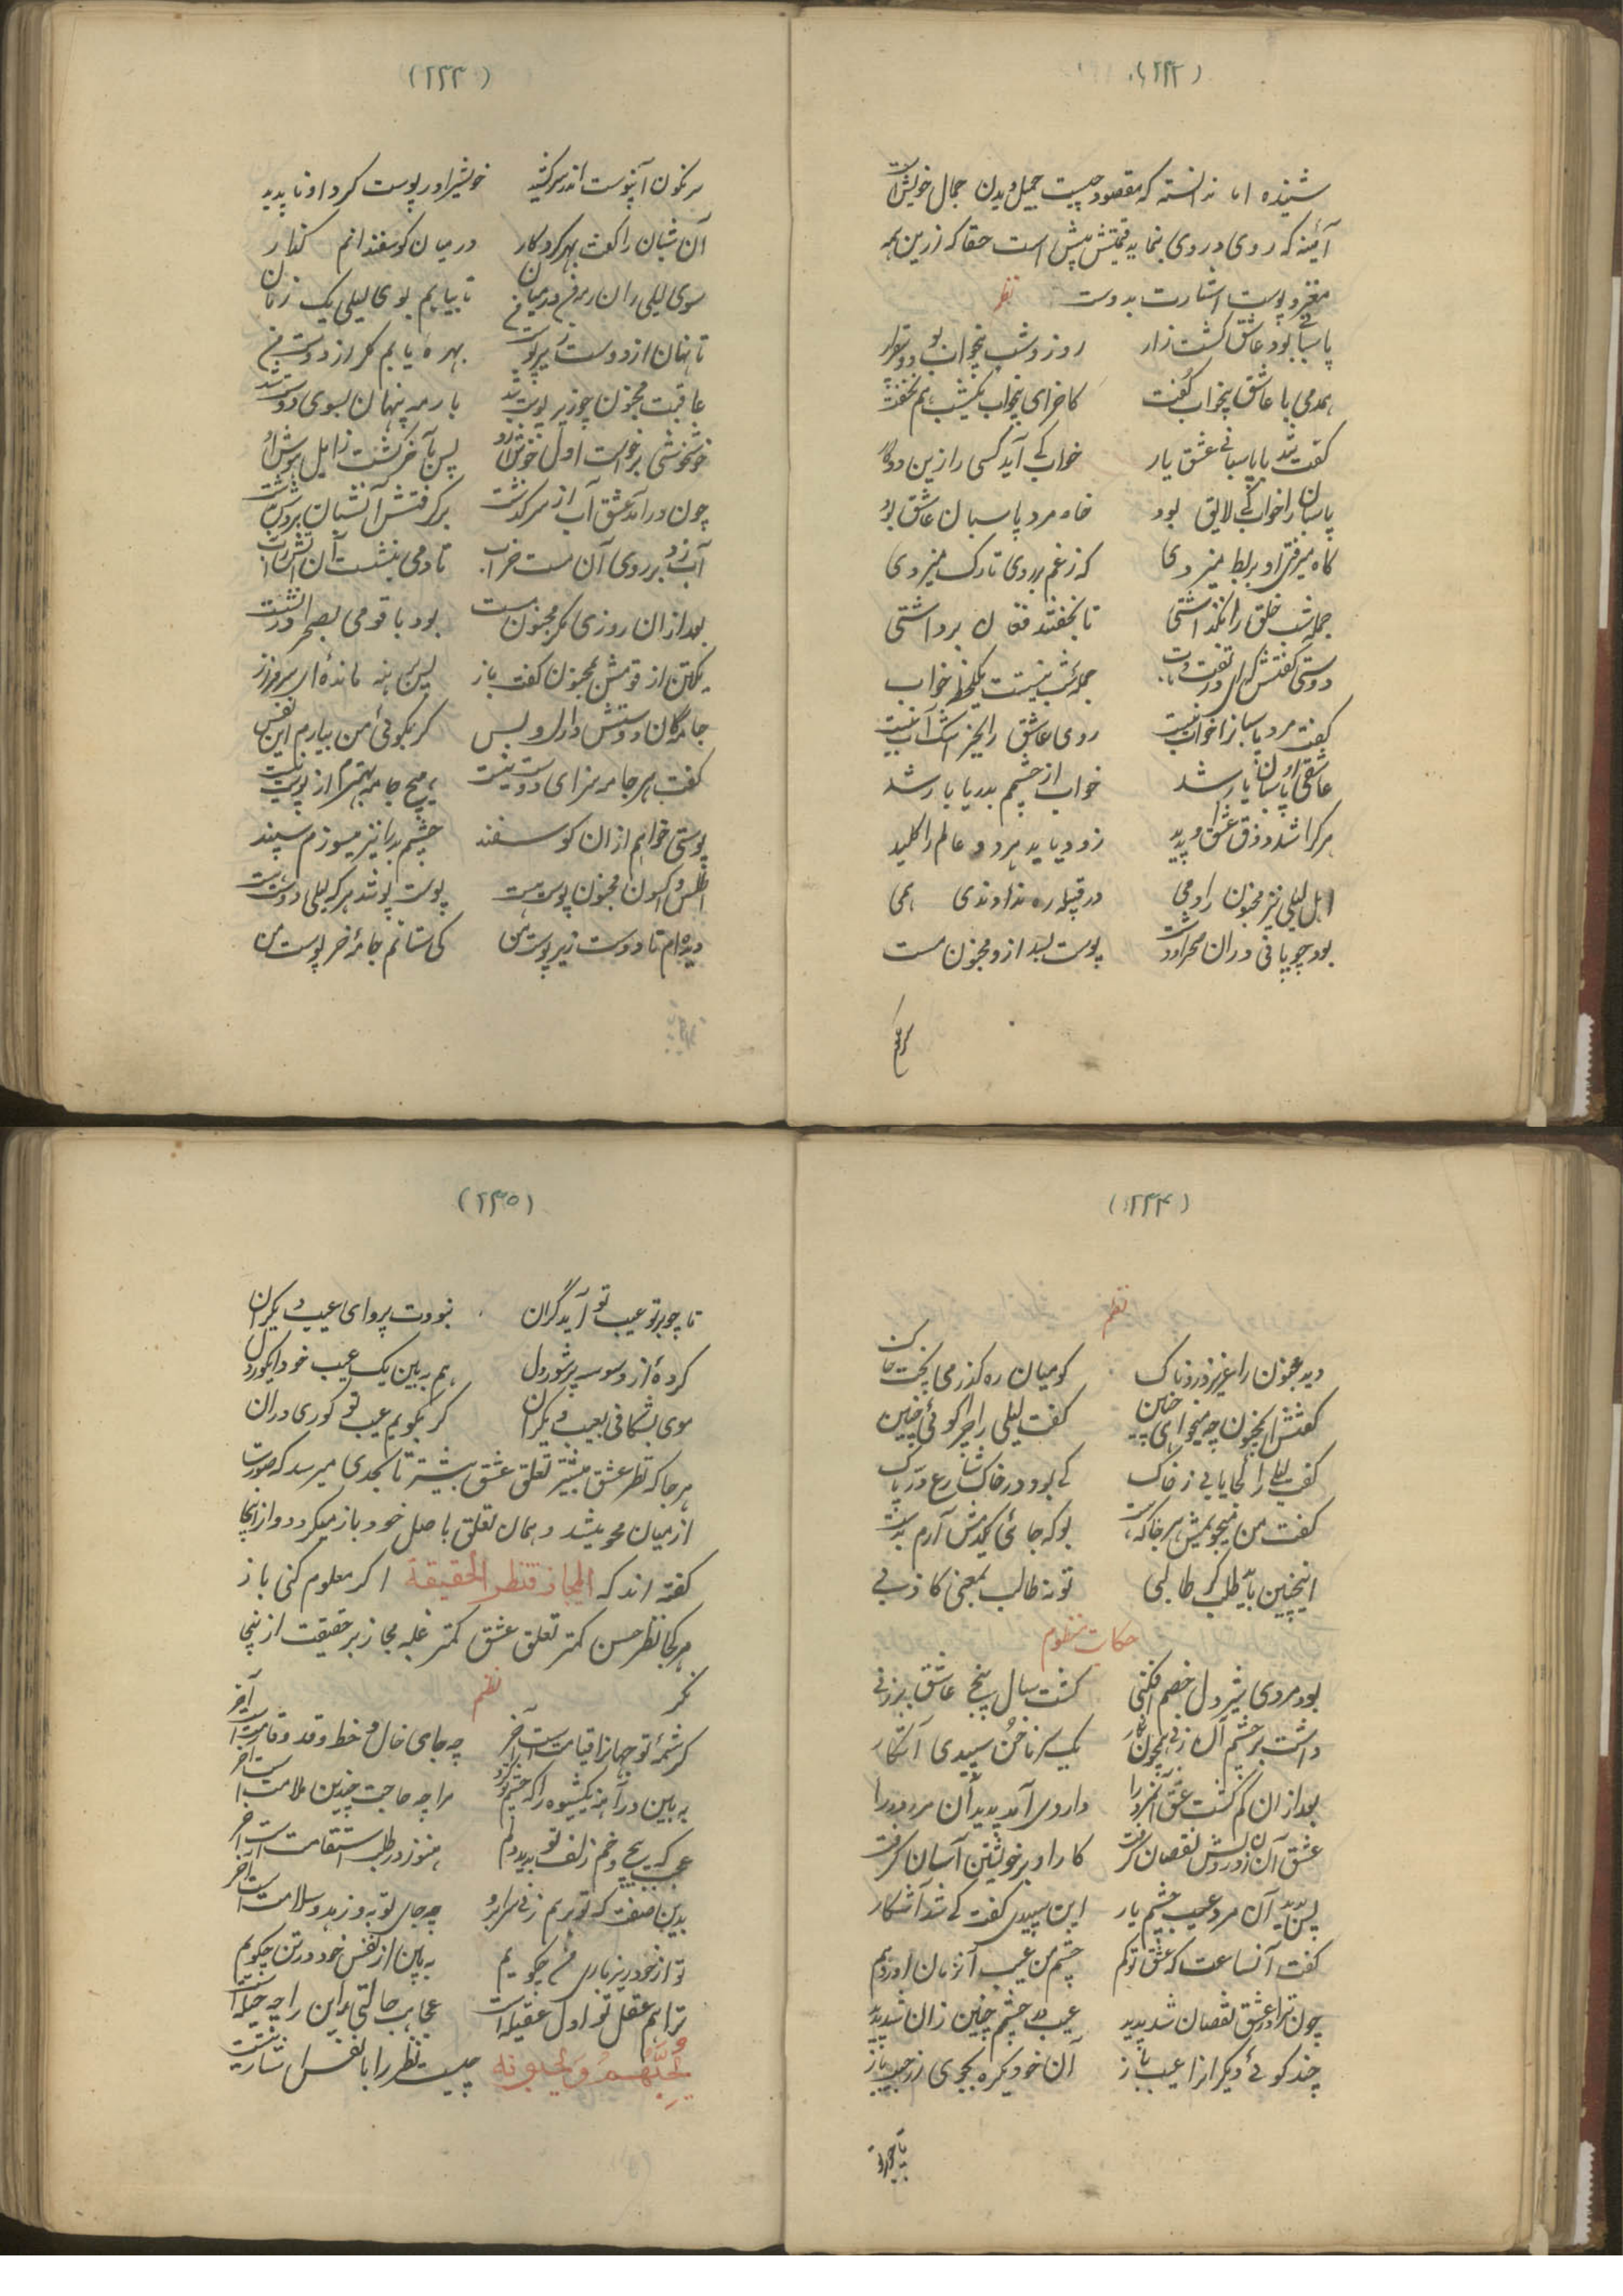 (۲۳۲)
شنیده اما ندانسته که مقصود چیست جمیل و بدن جمال خویش است
آئینه که روی در روی نماید قیمتش بیش است حقا که زرین همه
مغز و پوست اشارت بدوست نظم
پاسبانی بود عاشق گشت زار روز و شب بیخواب بود و بیقرار
همدمی با عاشق بیخواب گفت کاخرای بیخواب یکشب هم نخفت
گفت شد با پاسبانی عشق یار خواب کی آید کسی را زین دو کار
پاسبان را خواب کی لایق بود خاصه مرد پاسبان عاشق بود
گاه میرفتی و بربط میزدی که ز غم بر روی تارک میزدی
جمله شب خلق را نگذاشتی تا بخفتند فغان برداشتی
دوستی گفتش که ای در تفت و تاب جمله شب نیست یکلحظه خواب
گفت مرد پاسبانرا خواب نیست روی عاشق را بجز اشک آب نیست
عاشقی و پاسبان یار شد خواب از چشم بدریا بار شد
هرکرا شد ذوق عشق او پدید زود یابد هر دو عالم را کلید
اهل لیلی نیز مجنون را دمی در قبیله ره ندادندی همی
بود چوپانی دران صحرا و دشت پوست بستد ازو مجنون مست
سرنگون
(۲۳۳)
سرنگون آن پوست اندر سر کشید خویش را در پوست کرد او ناپدید
آن شبان را گفت بهر کردگار در میان گوسفندانم گذار
سوی لیلی ران رمه من در میان تا بیابم بوی لیلی یک زمان
تا نهان از دوست زیر پوست بهره یابم گر از دوست من
عاقبت مجنون چو زیر پوست شد با رمه پنهان بسوی دوست شد
خوشخوشی برخواست اول خوش ازو پس بآخر گشت زایل هوش ازو
چون درآمد عشق آب از سر گذشت برگرفتش آن شبان بردش بدشت
آب زد بر روی آن مست خراب تا دمی بنشست آن آتش ز آب
بعد ازان روزی مگر مجنون مست بود با قومی بصحرا در نشست
یکتن از قومش بمجنون گفت باز بس برهنه مانده ای سرفراز
جامه کان دوستش داری و بس گر بگوئی من بیارم این نفس
گفت هر جامه سزای دوست نیست هیچ جامه بهترم از پوست نیست
پوستی خواهم ازان گوسفند چشم بد را نیز میسوزم سپند
اطلس و اکسون مجنون پوست است پوست پوشد هر که لیلی دوست است
دیده ام تا دوست زیر پوست من کی ستانم جامه خز پوست من
(۲۳۴)
نظم
دید مجنون را عزیزی دردناک کو میان ره گذر می بیخت خاک
گفتش ای مجنون چه میجوئی چنین گفت لیلی را همی جوئی چنین
گفت لیلی را کجا یابی ز خاک کی بود در خاک شارع در پاک
گفت من میجویمش هر جا که هست بو که جائی یکدمش آرم بدست
اینچنین باید طلب گر طالبی تو نه طالب بمعنی کاذبی
حکایت منظوم
بود مردی شیردل خصم افکنی گشت سال پنج عاشق بر زنی
داشت بر چشم آن زن همچون نگار یک سر ناخن سپیدی آشکار
بعد ازان کم گشت عشق آن مرد را داروی آمد پدید آن مرد درد را
عشق آن زن در دلش نقصان گرفت کار او بر خویشتن آسان گرفت
پس بدید آن مرد عیب چشم یار این سپیدی گفت کی شد آشکار
گفت آن ساعت که عشق تو کم چشم من عیب آن زمان آورد هم
چون ترا در عشق نقصان شد پدید عیب در چشم چنین زان شد پدید
چند گوئی دیگر انرا عیب باز آن خود یکره بجوی از جیب باز
تا چو بر تو
(۲۳۵)
تا چو بر تو عیب تو آید گران نبودت پروای عیب دیگران
کرده از وسوسه پر شور دل هم ببین یک عیب خود ای کوردل
موی بشکافی بعیب دیگران گر بگویم عیب تو کوری دران
هر جا که نظر عشق بیشتر تعلق عشق بیشتر تا بحدی میرسد که صورت
از میان محو میشد و همان تعلق با اصل خود باز میگردد و از اینجا
گفته اند که المجاز قنطرة الحقیقة اگر معلوم کنی باز
هر کجا نظر حسن کمتر تعلق عشق کمتر غلبه مجاز بر حقیقت ازینجا
نگر نظم
کرشمه تو جهانرا قیامت است آخر چه جای خال و خط و قد و قامت است آخر
ببین در آینه یکشیوه را که چشم تو کرد مرا چه حاجت چندین ملامت است آخر
عجب که پیچ و خم زلف تو بدید دلم هنوز در طلب استقامت است آخر
بدین صفت که تو بریم زنی سراسر چه جای توبه و زهد و سلامت است آخر
تو از خود ریزباری من چگویم ببین از نفس خود در تن چگویم
ترا هم عقل تو اول عقیله است عجایب حالتی این را چه حیله است
یحبهم و یحبونه چیست نظر را با نفس شارت نیست